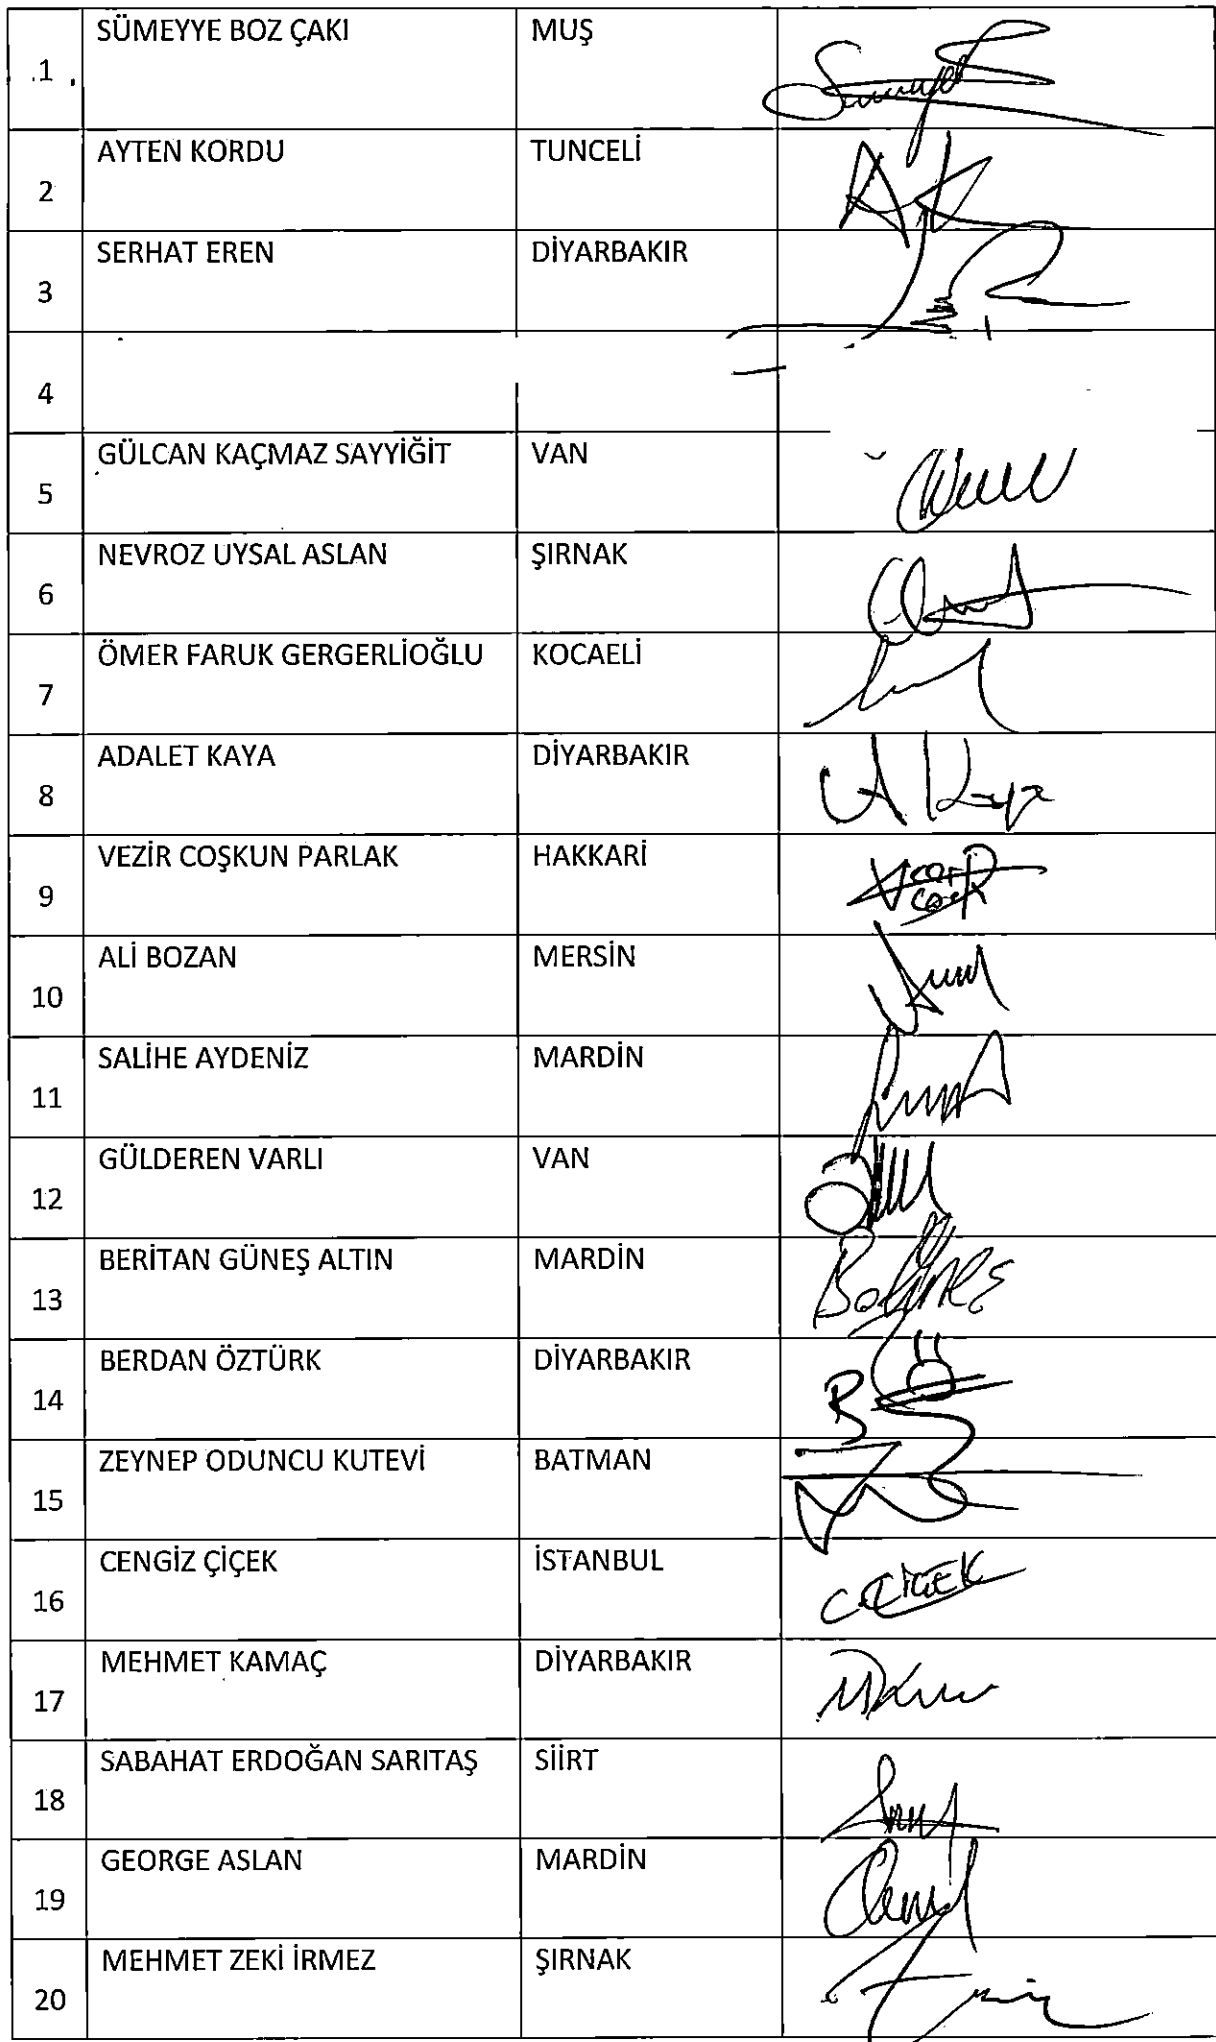 1 SÜMEYYE BOZ ÇAKI MUŞ
2 AYTEN KORDU TUNCELİ
3 SERHAT EREN DİYARBAKIR
4
5 GÜLCAN KAÇMAZ SAYYİĞİT VAN
6 NEVROZ UYSAL ASLAN ŞIRNAK
7 ÖMER FARUK GERGERLİOĞLU KOCAELİ
8 ADALET KAYA DİYARBAKIR A Kaya
9 VEZİR COŞKUN PARLAK HAKKARİ
10 ALİ BOZAN MERSİN
11 SALİHE AYDENİZ MARDİN
12 GÜLDEREN VARLI VAN
13 BERİTAN GÜNEŞ ALTIN MARDİN
14 BERDAN ÖZTÜRK DİYARBAKIR
15 ZEYNEP ODUNCU KUTEVİ BATMAN
16 CENGİZ ÇİÇEK İSTANBUL C.ÇİÇEK
17 MEHMET KAMAÇ DİYARBAKIR
18 SABAHAT ERDOĞAN SARITAŞ SİİRT
19 GEORGE ASLAN MARDİN
20 MEHMET ZEKİ İRMEZ ŞIRNAK